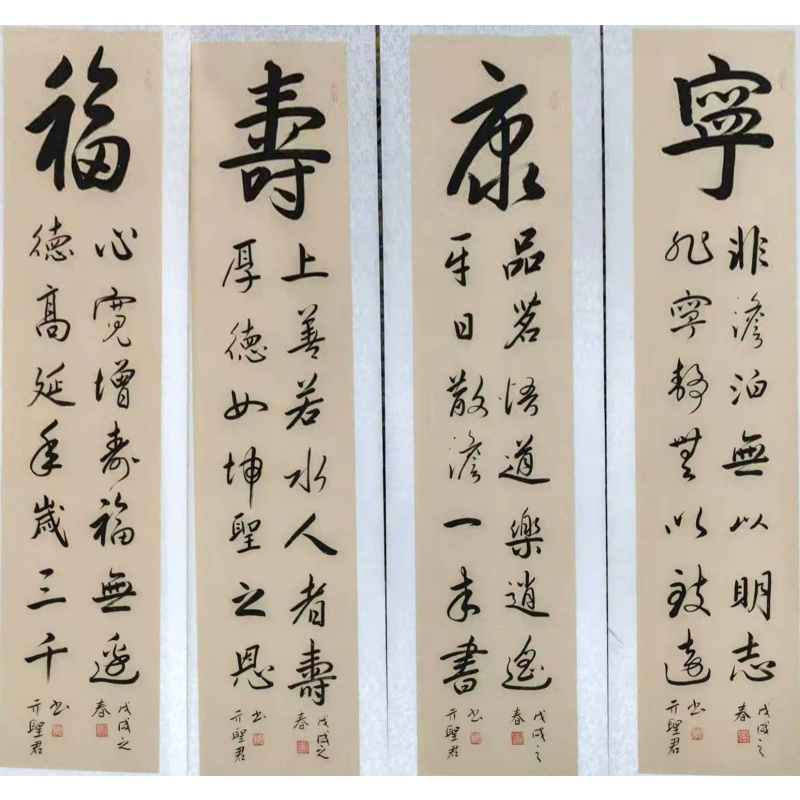 福
心寬增壽福無邊
德高延年歲三千
戊戌之
春
亓聖君
书
壽
上善若水人者壽
厚德如坤聖之恩
戊戌之
春
亓聖君
书
康
品茗悟道樂逍遙
平日散澹一本書
戊戌之
春
亓聖君
书
寧
非澹泊無以明志
非寧靜無以致遠
戊戌之
春
亓聖君
书